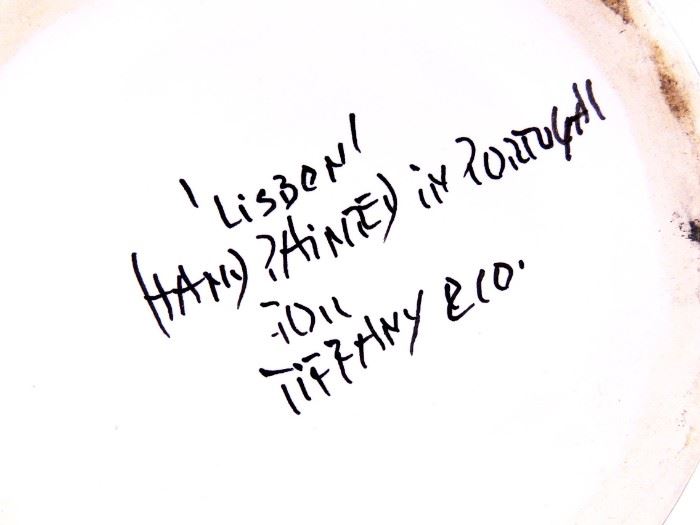 'LiSBON'
HAND PAiNTED iN PORTUGAl
FOR
TiFFANY & CO.